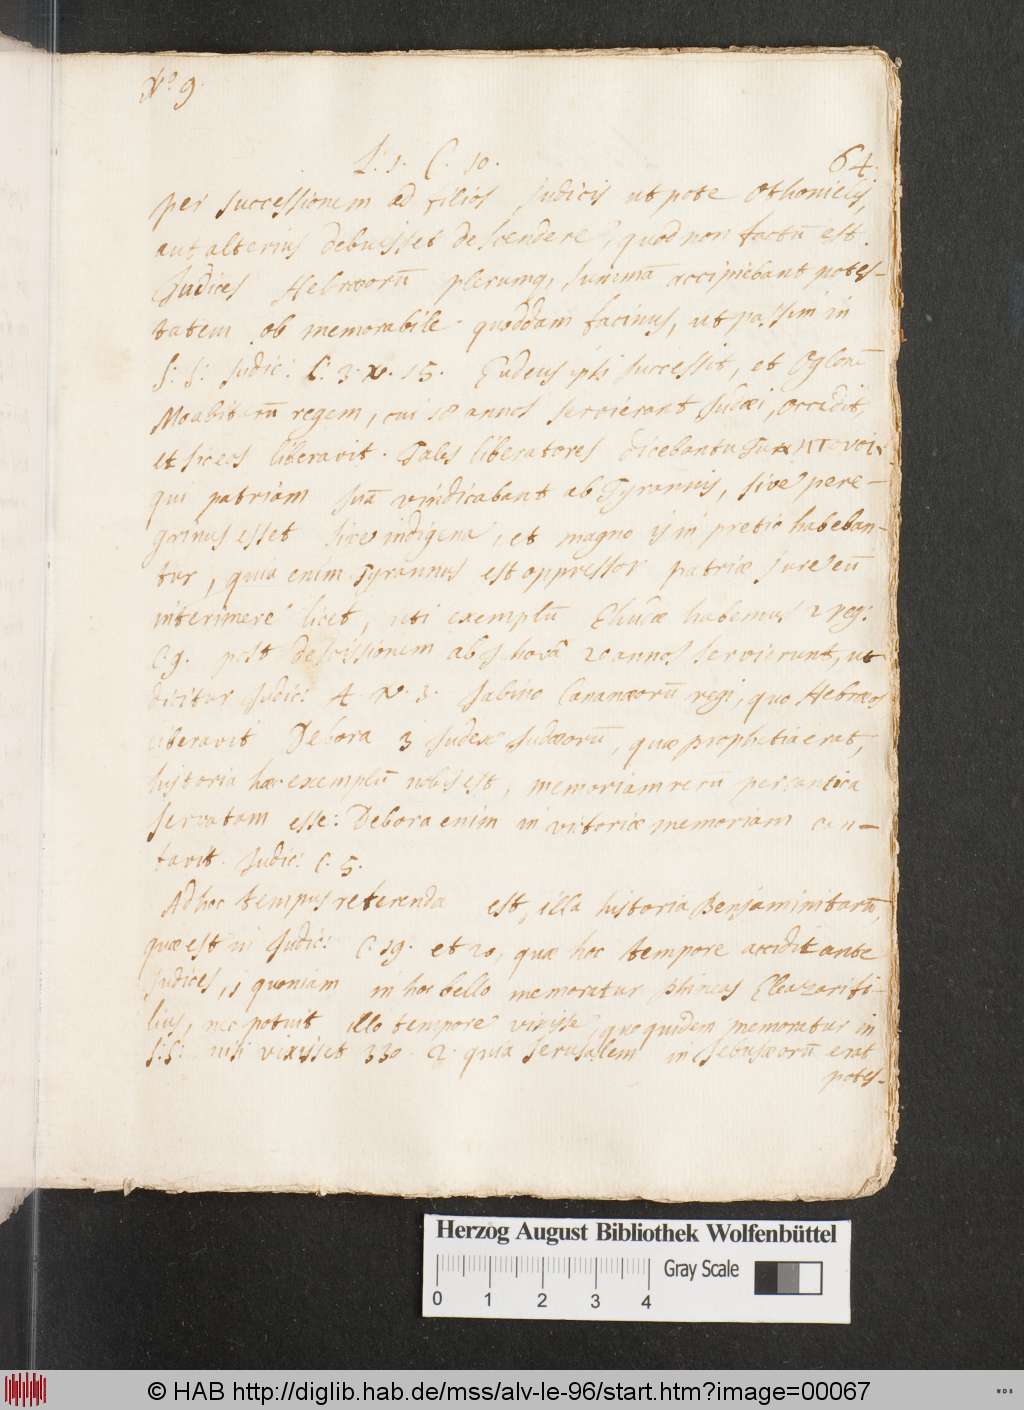 No. 9.
L: 1. C. 10.
64.
per successionem ad filios, Judicis utpote Othonielis,
aut alterius debuisset descendere, quod non factū est.
Judices Hebræorū plerumq, summā accipiebant potes-
tatem ob memorabile quoddam facinus, ut passim in
S: S: Judic: C: 3. v. 15. Eudeus ipsi successit, et Eglonē
Moabitarū regem, cui 18 annos servierant Judæi, occidit,
et sic eos liberavit. Tales liberatores dicebantur
qui patriam suā vindicabant ab Tyrannis, sive pere-
grinus esset sive indigena, et magno ij in pretio habeban-
tur, quia enim Tyrannus est oppressor patriæ jure eū
interimere licet, uti exemplū habemus 2 reg:
C. 9. post descissionem ab 20 annos servierunt, ut
dicitur Judic: 4. v. 3. Jabino Cananæorū regi, quo Hebræos
liberavit Debora 3 Judex Judæorū, quæ prophetia erat,
historia hæc exemplū nobis est, memoriam rerū per cantica
servatam esse: Debora enim in victoriæ memoriam can-
tavit. Judic: C. 5.
Ad hoc tempus referenda est, illa historia Benjaminitarū,
quæ est in Judic: C. 19. et 20, quæ hoc tempore accidit ante
Judices, 1 quoniam in hoc bello memoratur Phineas Eleazari fi-
lius, nec potuit illo tempore vixisse, quo quidem memoratur in
S: S: nisi vixisset 330. 2. quia Jerusalem in Jebusæorū erat
potes-
Herzog August Bibliothek Wolfenbüttel
Gray Scale
0 1 2 3 4
© HAB http://diglib.hab.de/mss/alv-le-96/start.htm?image=00067